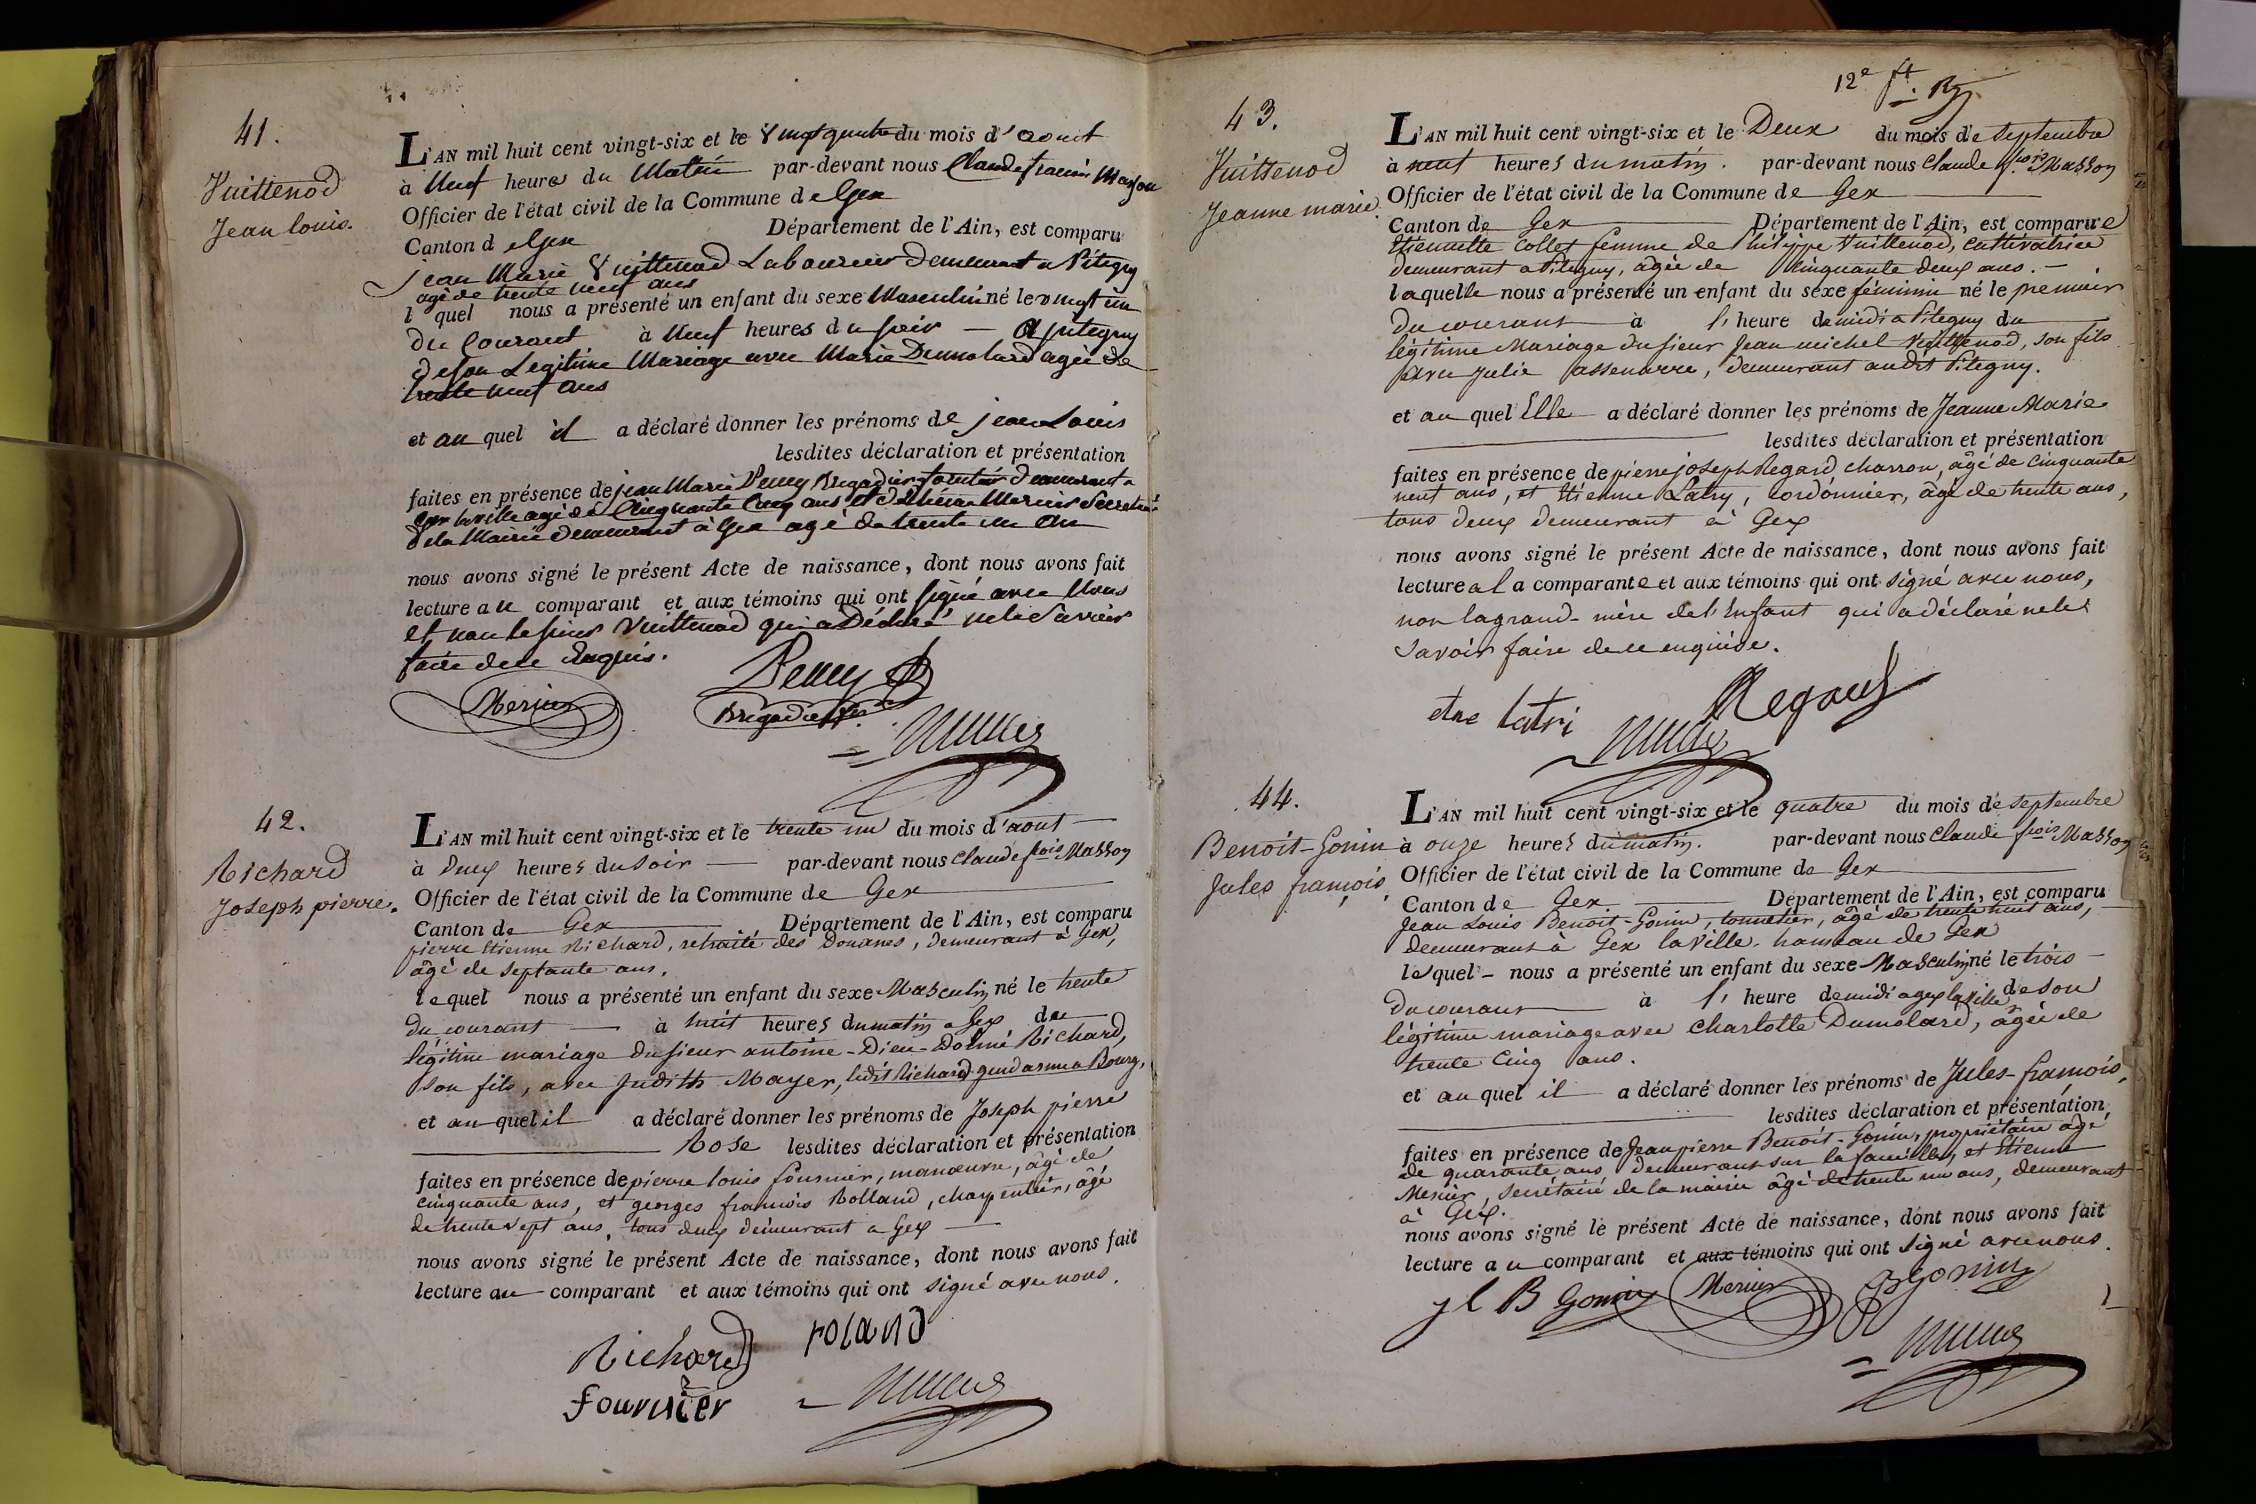 41.
Vuittenod
Jean Louis.
L'AN mil huit cent vingt-six et le vingt quatre du mois d'aout
à Neuf heures du Matin par-devant nous Claude francois Masson
Officier de l'état civil de la Commune de Gex
Canton de Gex Département de l'Ain, est comparu
jean Marie Vuittenod Laboureur demeurant a Pitegny
agé de trente neuf ans
lequel nous a présenté un enfant du sexe Masculin né le vingt un
du Courant à Neuf heures du soir — A pitegny
de son Legitime Mariage avec Marie Dumolard agée de
trente neuf ans
et au quel il a déclaré donner les prénoms de jean Louis
lesdites déclaration et présentation
faites en présence de jean Marie Brigadier forestier demeurant a
Gex la ville agé de Cinquante Cinq ans et d'Etienne Mercier Secretaire
de la Mairie demeurant à Gex agé de trente un An
nous avons signé le présent Acte de naissance, dont nous avons fait
lecture au comparant et aux témoins qui ont signé avec Nous
et non le sieur Vuittenod qui a Déclaré ne le Savoir
faire de ce Enquis.
Mercier
Brigadier
42.
Richard
Joseph pierre.
L'AN mil huit cent vingt-six et le trente un du mois d'aout
à deux heures du soir par-devant nous Claude fcois Masson
Officier de l'état civil de la Commune de Gex
Canton de Gex Département de l'Ain, est comparu
pierre Etienne Richard, retraité des Douanes, demeurant à Gex,
âgé de septante ans.
lequel nous a présenté un enfant du sexe Masculin né le trente
du courant à huit heures du matin a Gex du
légitime mariage du sieur antoine-Dieu-Donné Richard,
son fils, avec Judith Mayer, ledit Richard gendarme a Bourg,
et au quel il a déclaré donner les prénoms de Joseph pierre
Rose lesdites déclaration et présentation
faites en présence de pierre louis fournier, manœuvre, âgé de
cinquante ans, et georges francois Rolland, charpentier, âgé
de trente sept ans, tous deux demeurant a Gex
nous avons signé le présent Acte de naissance, dont nous avons fait
lecture au comparant et aux témoins qui ont signé avec nous.
Richard roland
fournier
12e
43.
Vuittenod
Jeanne marie.
L'AN mil huit cent vingt-six et le Deux du mois de septembre
à neuf heures du matin. par-devant nous Claude fcois Masson
Officier de l'état civil de la Commune de Gex
Canton de Gex Département de l'Ain, est comparue
Etiennette Collet femme de Philippe Vuittenod, cultivatrice
demeurant a Pitegny, âgée de cinquante deux ans. —
laquelle nous a présenté un enfant du sexe féminin né le premier
du courant à l'heure de midi a Pitegny du
légitime Mariage du sieur Jean michel Vuittenod, son fils
avec Julie demeurant audit Pitegny.
et au quel Elle a déclaré donner les prénoms de Jeanne Marie
lesdites déclaration et présentation
faites en présence de pierre joseph Regard charron, âgé de cinquante
neuf ans, et Etienne Latry, cordonnier, âgé de trente ans,
tous deux demeurant à Gex
nous avons signé le présent Acte de naissance, dont nous avons fait
lecture a la comparante et aux témoins qui ont signé avec nous,
non la grand-mère de l'Enfant qui a déclaré ne le
savoir faire de ce enquise.
etne latri Regard
44.
Benoit-Gonin
Jules françois,
L'AN mil huit cent vingt-six et le quatre du mois de septembre
à onze heures du matin. par-devant nous Claude fcois Masson
Officier de l'état civil de la Commune de Gex
Canton de Gex Département de l'Ain, est comparu
Jean Louis Benoit-Gonin, tonnelier, âgé de trente huit ans,
demeurant à Gex la ville, hameau de Gex
lequel nous a présenté un enfant du sexe Masculin né le trois
du courant à l'heure de midi a gex la ville de son
légitime mariage avec Charlotte Dumolard, âgée de
trente cinq ans.
et au quel il a déclaré donner les prénoms de Jules-françois,
lesdites déclaration et présentation
faites en présence de Jean pierre Benoit-Gonin, propriétaire âgé
de quarante ans demeurant sur la faucille, et Etienne
Mercier, secrétaire de la mairie âgé de trente un ans, demeurant
à Gex.
nous avons signé le présent Acte de naissance, dont nous avons fait
lecture au comparant et aux témoins qui ont signé avec nous.
jl B Gonin Mercier B gonin